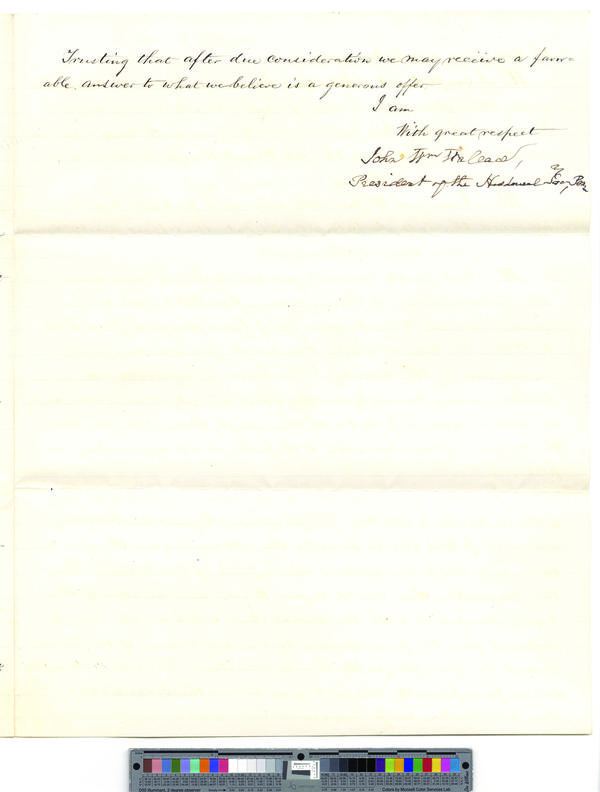 Trusting that after due consideration we may receive a favor=
able answer to what we believe is a generous offer
I am
With great respect
John Wm Wallace,
President of the Historical
Colors by Munsell Color Services Lab